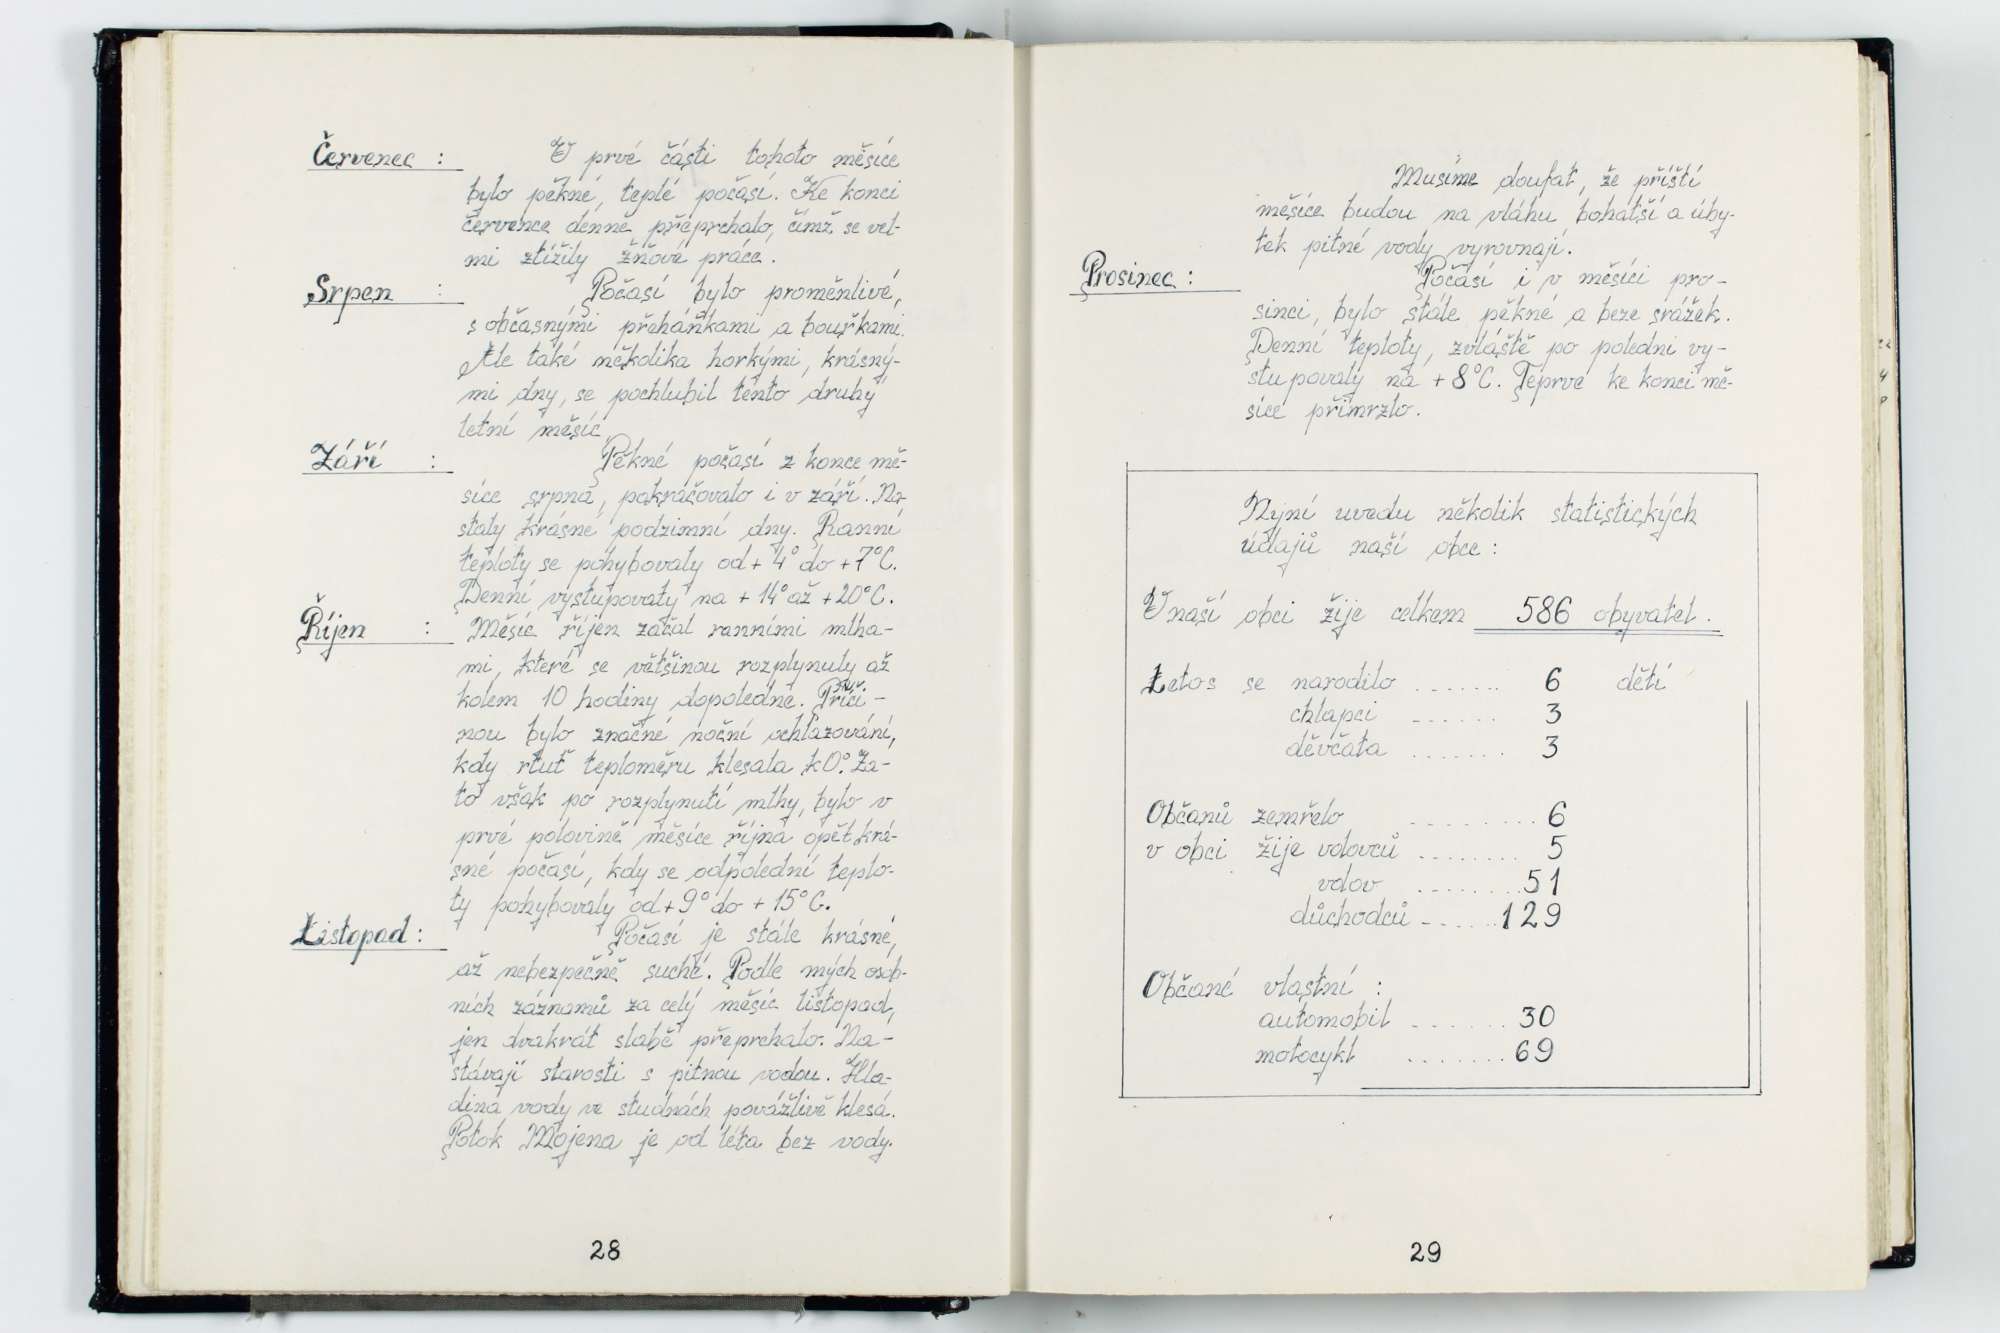 Červenec : V prvé části tohoto měsíce
bylo pěkné, teplé počasí. Ke konci
července denně přeprchalo, čímž se vel-
mi ztížily žňové práce.
Srpen : Počasí bylo proměnlivé,
s občasnými přeháňkami a bouřkami.
Ale také několika horkými, krásný-
mi dny, se pochlubil tento druhý
letní měsíc.
Září : Pěkné počasí z konce mě-
síce srpna, pokračovalo i v září. Na-
staly krásné podzimní dny. Ranní
teploty se pohybovaly od + 4° do +7°C.
Denní vystupovaly na + 14° až +20°C.
Říjen : Měsíc říjen začal ranními mlha-
mi, které se většinou rozplynuly až
kolem 10 hodiny dopoledne. Příči-
nou bylo značné noční ochlazování,
kdy rtuť teploměru klesala k 0°. Za-
to však po rozplynutí mlhy, bylo v
prvé polovině měsíce října opět krá-
sné počasí, kdy se odpolední teplo-
ty pohybovaly od +9° do + 15°C.
Listopad : Počasí je stále krásné,
až nebezpečně suché. Podle mých osob-
ních záznamů za celý měsíc listopad,
jen dvakrát slabě přeprchalo. Na-
stávají starosti s pitnou vodou. Hla-
dina vody ve studnách povážlivě klesá.
Potok Mojena je od léta bez vody.
28
Musíme doufat, že příští
měsíce budou na vláhu bohatší a úby-
tek pitné vody vyrovnají.
Prosinec : Počasí i v měsíci pro-
sinci, bylo stále pěkné a beze srážek.
Denní teploty, zvláště po poledni vy-
stupovaly na + 8°C. Teprve ke konci mě-
síce přimrzlo.
Nyní uvedu několik statistických
údajů naší obce :
V naší obci žije celkem 586 obyvatel.
Letos se narodilo ....... 6 dětí
chlapci ...... 3
děvčata ....... 3
Občanů zemřelo ......... 6
v obci žije vdovců ........ 5
vdov ........ 51
důchodců ...... 129
Občané vlastní :
automobil ....... 30
motocykl ........ 69
29